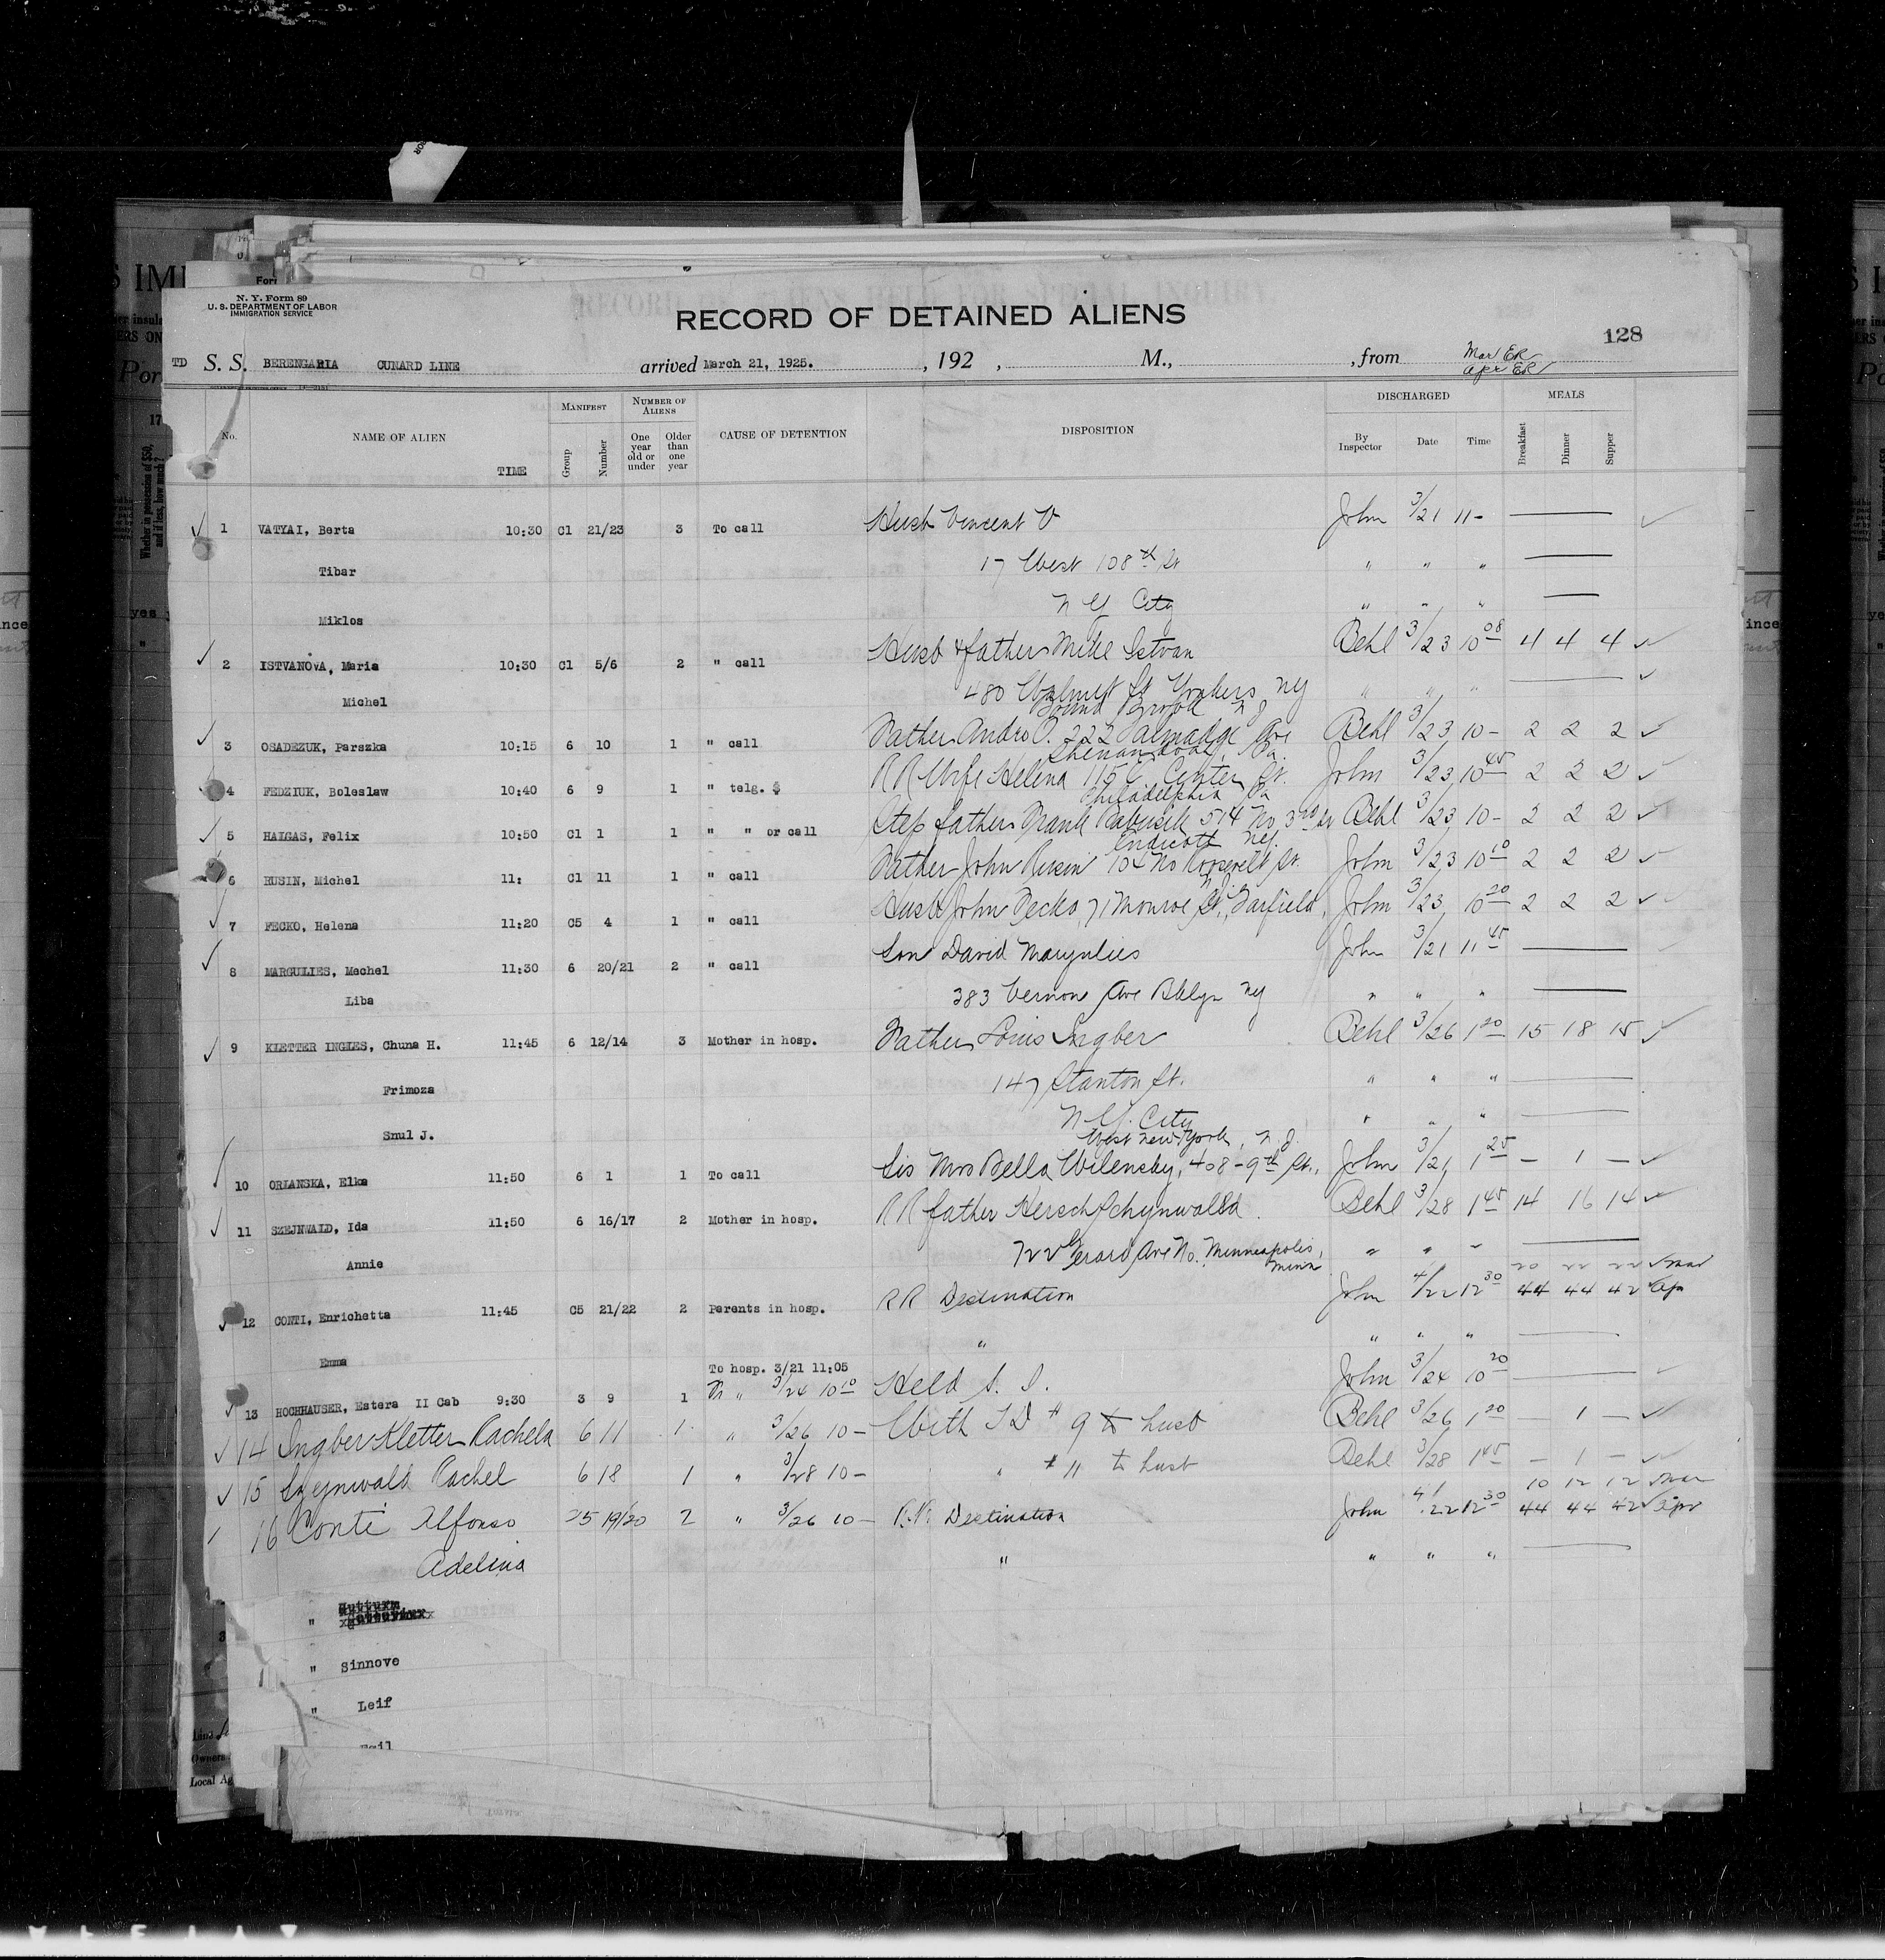 N. Y. Form 89
U. S. DEPARTMENT OF LABOR
IMMIGRATION SERVICE
RECORD OF DETAINED ALIENS
128
TD S. S. BERENGARIA CUNARD LINE arrived March 21, 1925. , 192 , M., , from Mar ER
Apr ER
No. NAME OF ALIEN TIME MANIFEST Group Number NUMBER OF ALIENS One year old or under Older than one year CAUSE OF DETENTION DISPOSITION DISCHARGED By Inspector Date Time MEALS Breakfast Dinner Supper
1 VATYAI, Berta 10:30 C1 21/23 3 To call Husb Vincent V John 3/21 11-
Tibar 17 West 108th St " " "
Miklos N Y City " " "
2 ISTVANOVA, Maria 10:30 C1 5/6 2 " call Husb & father Mike Istvan Behl 3/23 10 08 4 4 4
Michel 480 Walnut St Yonkers NY " " "
Bound Brook N J
3 OSADEZUK, Parszka 10:15 6 10 1 " call Father Andro O. 222 Talmadge Ave Behl 3/23 10- 2 2 2
Shenandoah, Pa.
4 FEDZIUK, Boleslaw 10:40 6 9 1 " telg. $ RR Wife Helena 115 C Center St. John 3/23 10 45 2 2 2
Philadelphia Pa
5 HALGAS, Felix 10:50 C1 1 1 " " or call Step father Frank 514 No 3rd St Behl 3/23 10- 2 2 2
Endicott NY.
6 RUSIN, Michel 11: C1 11 1 " call Father John Rusin 104 No Roosevelt St. John 3/23 10 10 2 2 2
N.J.
7 FECKO, Helena 11:20 C5 4 1 " call Husb John Fecko, 71 Monroe St., Garfield, John 3/23 10 20 2 2 2
8 MARGULIES, Mechel 11:30 6 20/21 2 " call Son David Margulies John 3/21 11 45
Liba 383 Vernon Ave Bklyn NY " " "
9 KLETTER INGLES, Chuna H. 11:45 6 12/14 3 Mother in hosp. Father Louis Ingber Behl 3/26 1 20 15 18 15
Frimoza 147 Stanton St. " " "
Smul J. N.Y. City " " "
West New York, N.J.
10 ORLANSKA, Elka 11:50 6 1 1 To call Sis Mrs Bella Wilensky, 408-9th St., John 3/21 1 25 - 1 -
11 SZEJNWALD, Ida 11:50 6 16/17 2 Mother in hosp. RR father Hersch Schynwalld Behl 3/28 1 45 14 16 14
Annie 722 Gerard Ave No. Minneapolis, Minn " " "
20 22 22 Mar
12 CONTI, Enrichetta 11:45 C5 21/22 2 Parents in hosp. RR Destination John 4/22 12 30 44 44 42 Apr
Emma " " " "
To hosp. 3/21 11:05
13 HOCHHAUSER, Estera II Cab 9:30 3 9 1 Fr " 3/24 10 10 Held S. I. John 3/24 10 20
14 Ingber Kletter Rachela 6 11 1 " 3/26 10- With TD # 9 to husb Behl 3/26 1 20 - 1 -
15 Szejnwald Rachel 6 18 1 " 3/28 10- " # 11 to husb Behl 3/28 1 45 - 1 -
10 12 12 Mar
16 Conti Alfonso 25 19/20 2 " 3/26 10- R.R. Destination John 4/22 12 30 44 44 42 Apr
Adelina " " " "
" Sinnove
" Leif
Local Ag